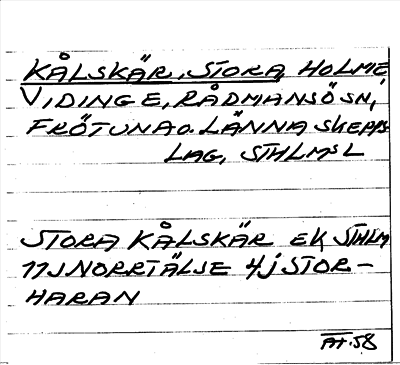 KÅLSKÄR, STORA, HOLME,
VIDINGE, RÅDMANSÖ SN,
FRÖTUNA O. LÄNNA SKEPPS
LAG, STHLMS L
STORA KÅLSKÄR EK, STHLM
11J NORRTÄLJE 4j STOR-
HARAN
AH.58